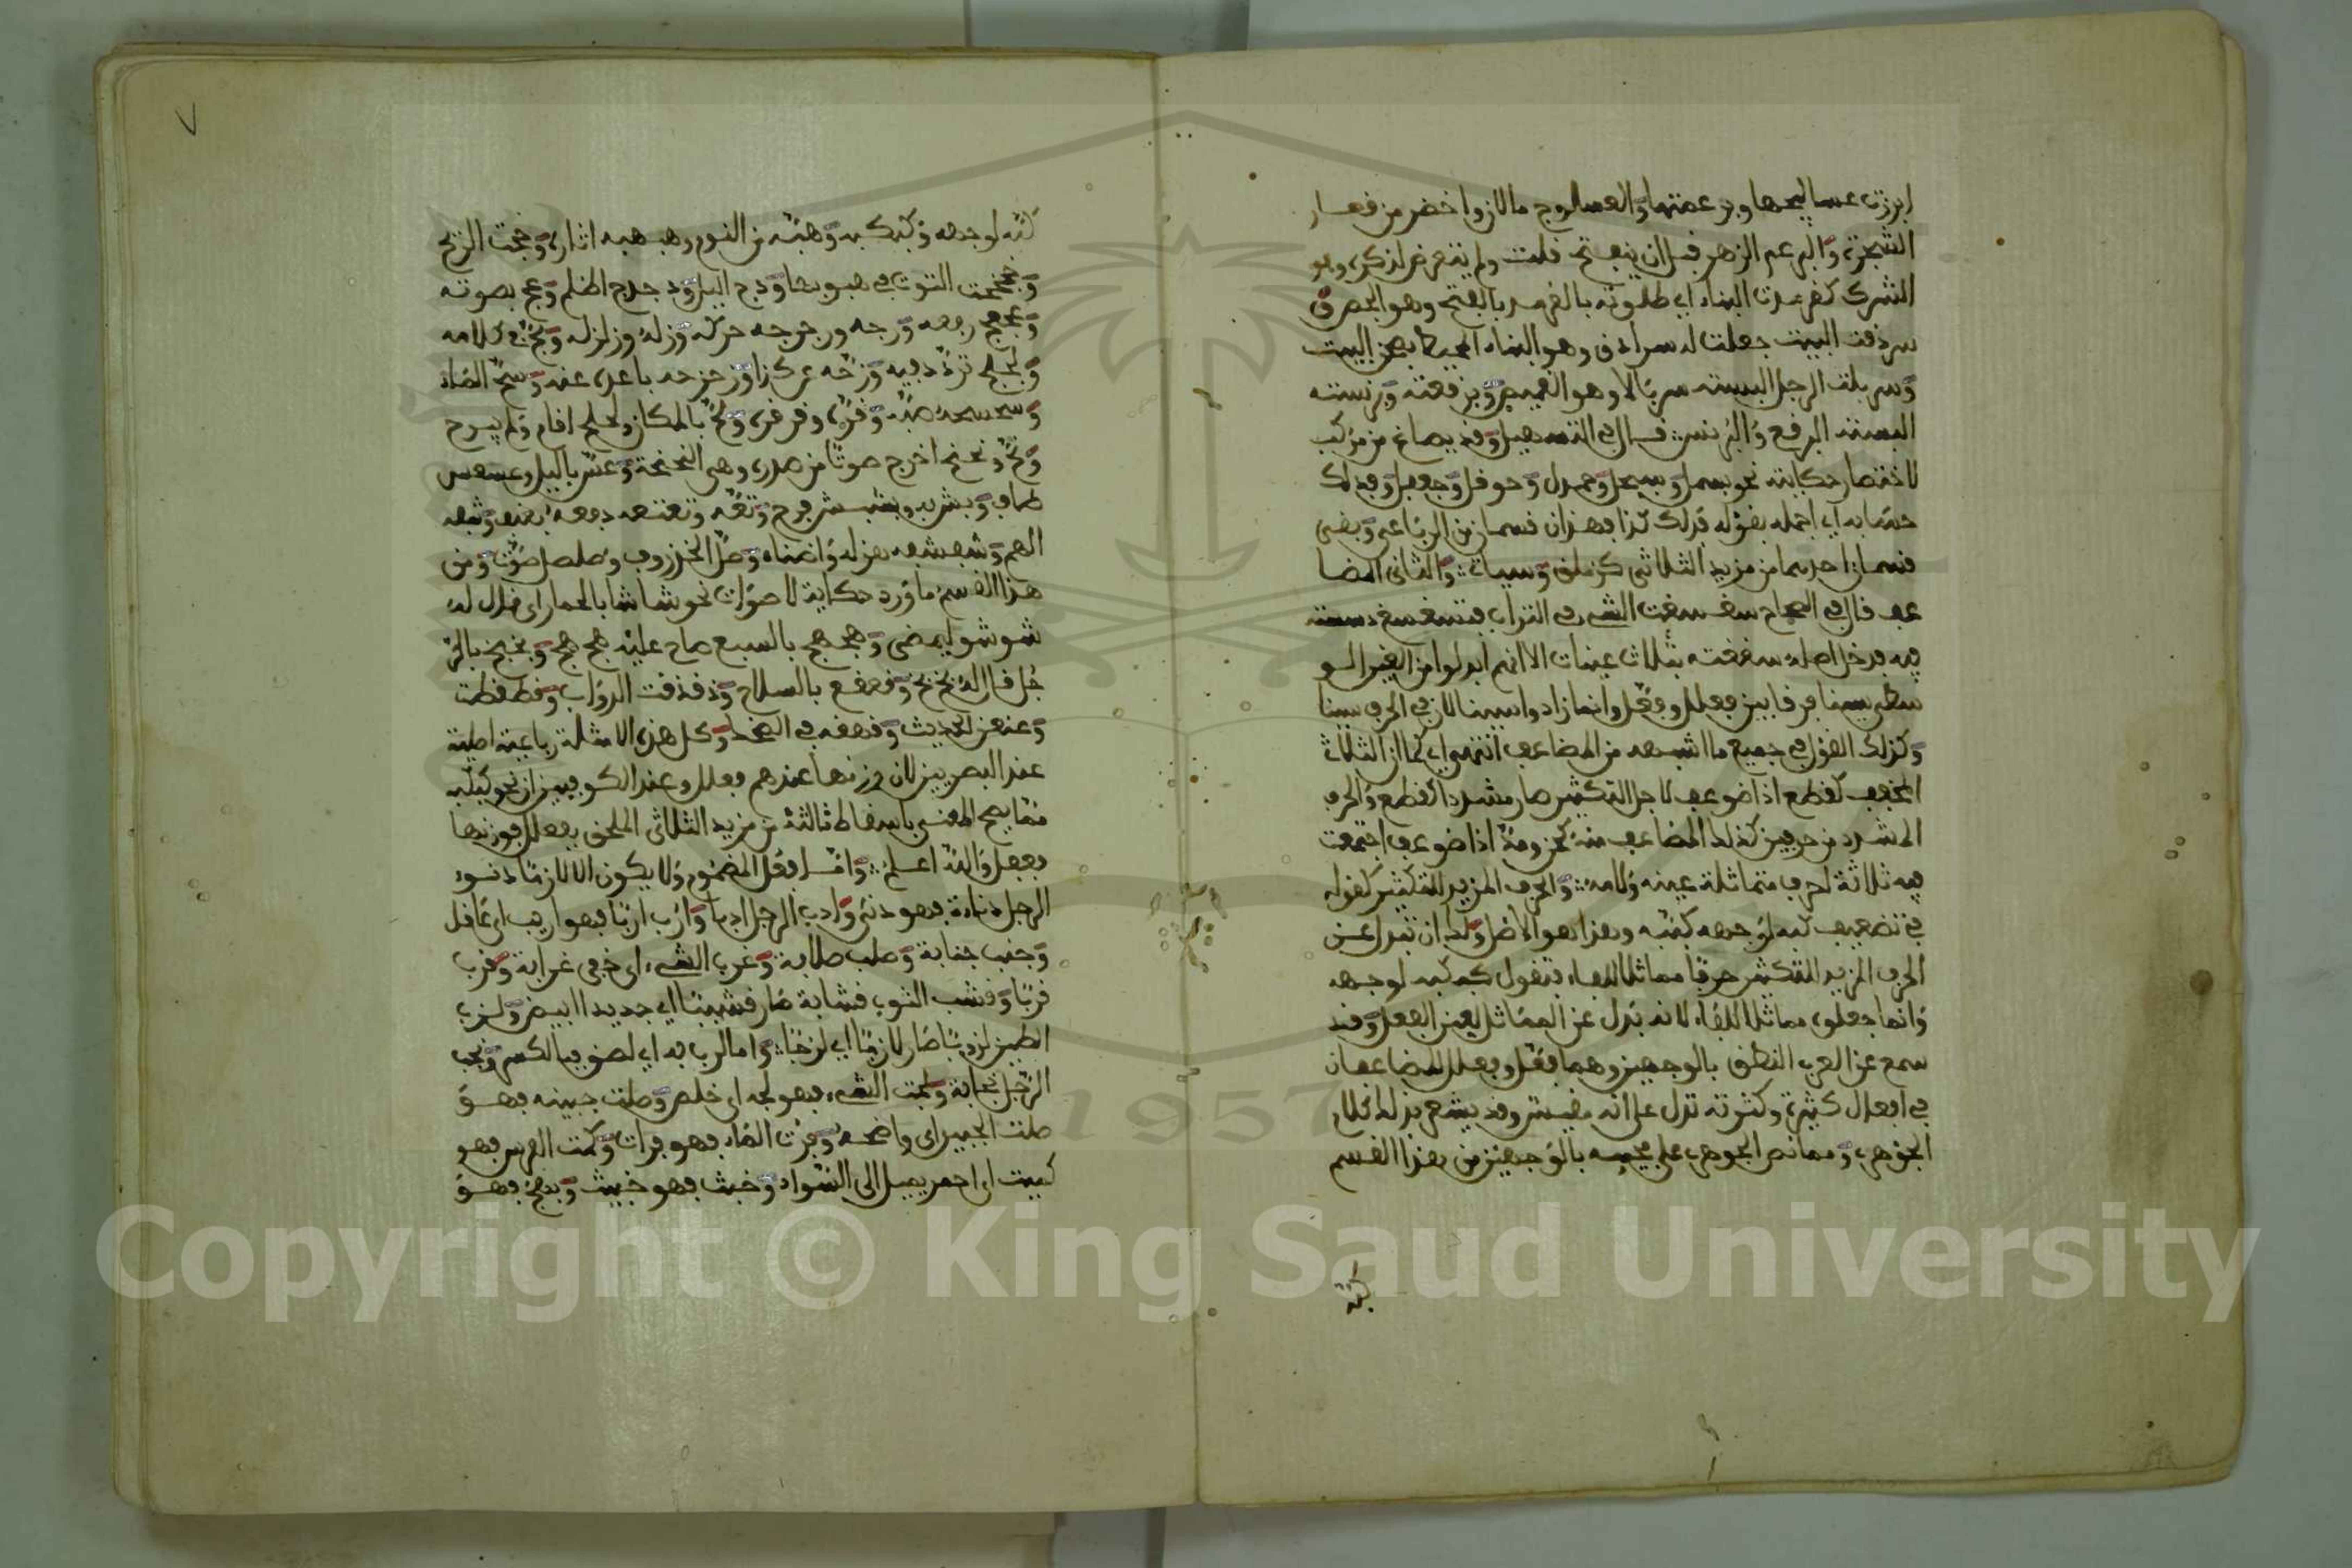 ابرزت عساليجها وبرعمتها والعسلوج ما لان واخضر من قضبان
الشجرة والبرعم الزهر قبل ان ينفتح قلت ولم يتعرض لذكره وهو
الشرك كقرمدت البناء اي طليته بالقرمد بالفتح وهو الجص و
سردقت البيت جعلت له سرادق وهو البناء المحيط بصحن البيت
وسربلت الرجل البسته سربالا وهو القميص وبرقعته وبرنسته
البسته البرقع والبرنس قال في التسهيل وقد يصاغ من مركب
لاختصار حكايته نحو بسمل وسبحل وحمدل وحوقل وجعفل وفذلك
حسابه اي اجمله بقوله فذلك كذا فهذان قسمان من الرباعي وبقي
قسمان احدهما من مزيد الثلاثي وسياتي والثاني المضا
عف قال في الصحاح سغسغت الشيء في التراب فتسغسغ دسسته
فيه فدخل اصله سغغته بثلاث غينات الا انهم ابدلوا من الغين الو
سطى سينا فرقا بين فعلل وفعّل وانما زادوا سينا لان في الحرف سينا
وكذلك القول في جميع ما اشبهه من المضاعف انتهى اي كما ان الثلاثي
المخفف كقطع اذا ضوعف لاجل التكثير صار مشددا كقطّع والحرف
المشدد من حرفين كذلك المضاعف منه اذا ضوعف اجتمعت
فيه ثلاثة احرف متماثلة عينه ولامه والحرف المزيد للتكثير كقوله
في تضعيف كبه لوجهه كببه وهذا هو الاصل ولك ان تبدل عن
الحرف المزيد للتكثير حرفا مماثلا للفاء فتقول كبكبه لوجهه
وانما جعلوه مماثلا للفاء لانه بدل عن المماثل لعين الفعل وقد
سمع عن العرب النطق بالوجهين وهما فعّل وفعلل المضاعفان
في افعال كثيرة وكثرته تدل على انه مقيس وقد يشعر بذلك كلام
الجوهري ومما نص الجوهري على مجيئه بالوجهين من هذا القسم
كبّه
كبّه لوجهه وكبكبه وهبّه من النوم وهبهبه اثاره وخجت الريح
وخجخجت التوت في هبوبها ودج الليل ودجدج اظلم وعج بصوته
وعجعج رفعه ورجه ورجرجه حركه وزله وزلزله ولج في كلامه
ولجلج تردد فيه وزحه عن كذا وزحزحه باعده عنه وسح الماء
وسحسحه صبّه وفرّه وفرفره ولح بالمكان ولحلح اقام ولم يبرح
ونح ونحنح اخرج صوتا من صدره وهي النحنحة وعس بالليل وعسعس
طاف وبش به وبشبش فرح وتعّه وتعتعه دفعه بعنف وشفه
الهم وشفشفه هزله واضناه وصل الخزروف وصلصل صوت ومن
هذا القسم ما ورد حكاية لاصوات نحو شاشا بالحمار اي قال له
شوشو ليمضي وهجهج بالسبع صاح عليه هج هج وبخبخ بالر
جل قال له بخ بخ وقعقع بالسلاح وذفذفت الدواب وقطقطت
وعنعن الحديث وقهقه في الضحك وكل هذه الامثلة رباعية اصلية
عند البصريين لان وزنها عندهم فعلل وعند الكوفيين ان نحو كبكبه
مما يصح المعنى باسقاط ثالثه من مزيد الثلاثي الملحق بفعلل فوزنها
فعفل والله اعلم واما فعل المضموم ولا يكون الا لازما دنوء
الرجل دناءة فهو دنيء وادب الرجل ادبا وارب اربا فهو اريب اي عاقل
وجنب جنابة وصلب صلابة وغرب الشيء اي خفي غرابة وقرب
قربا وقشب الثوب قشابة صار قشيبا اي جديدا ابيض ولزب
الطين لزوبا صار لازبا اي لزجا واما لزب به اي لصق فبالكسر ونجب
الرجل نجابة وبحت الشيء فهو بحت اي خلص وصلت جبينه فهو
صلت الجبين اي واضحه وفرت الماء فهو فرات وكمت الفرس فهو
كميت اي احمر يميل الى السواد وخبث فهو خبيث وبهج فهو
٧
Copyright © King Saud University
1957